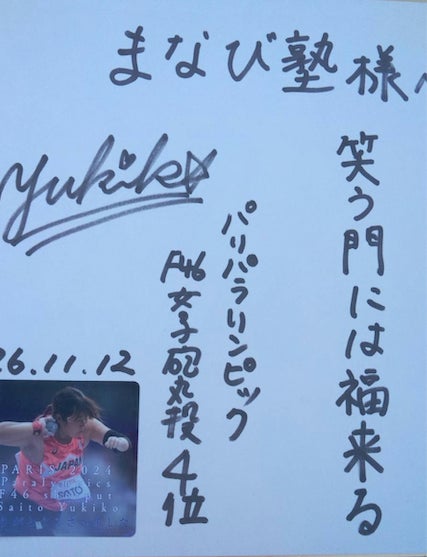 まなび塾様へ
笑う門には福来る
パリパラリンピック
F46女子砲丸投4位
Yukiko
26.11.12
PARIS 2024
Paralympics
F46 shot put
Saito Yukiko
JAPAN
SAITO